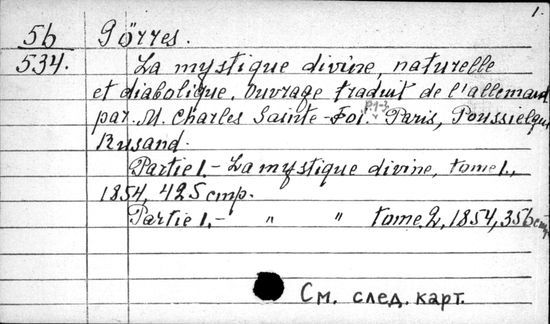 1.
56 Görres.
534. La mystique divine, naturelle
et diabolique. Ouvrage traduit de l'allemand
par M. Charles Sainte-Foi. P.1-3 Paris, Poussielque
Rusand.
Partie 1.- La mystique divine, tome 1.,
1854, 425 стр.
Partie 1.- " " tome 2, 1854, 356 стр.
См. след. карт.